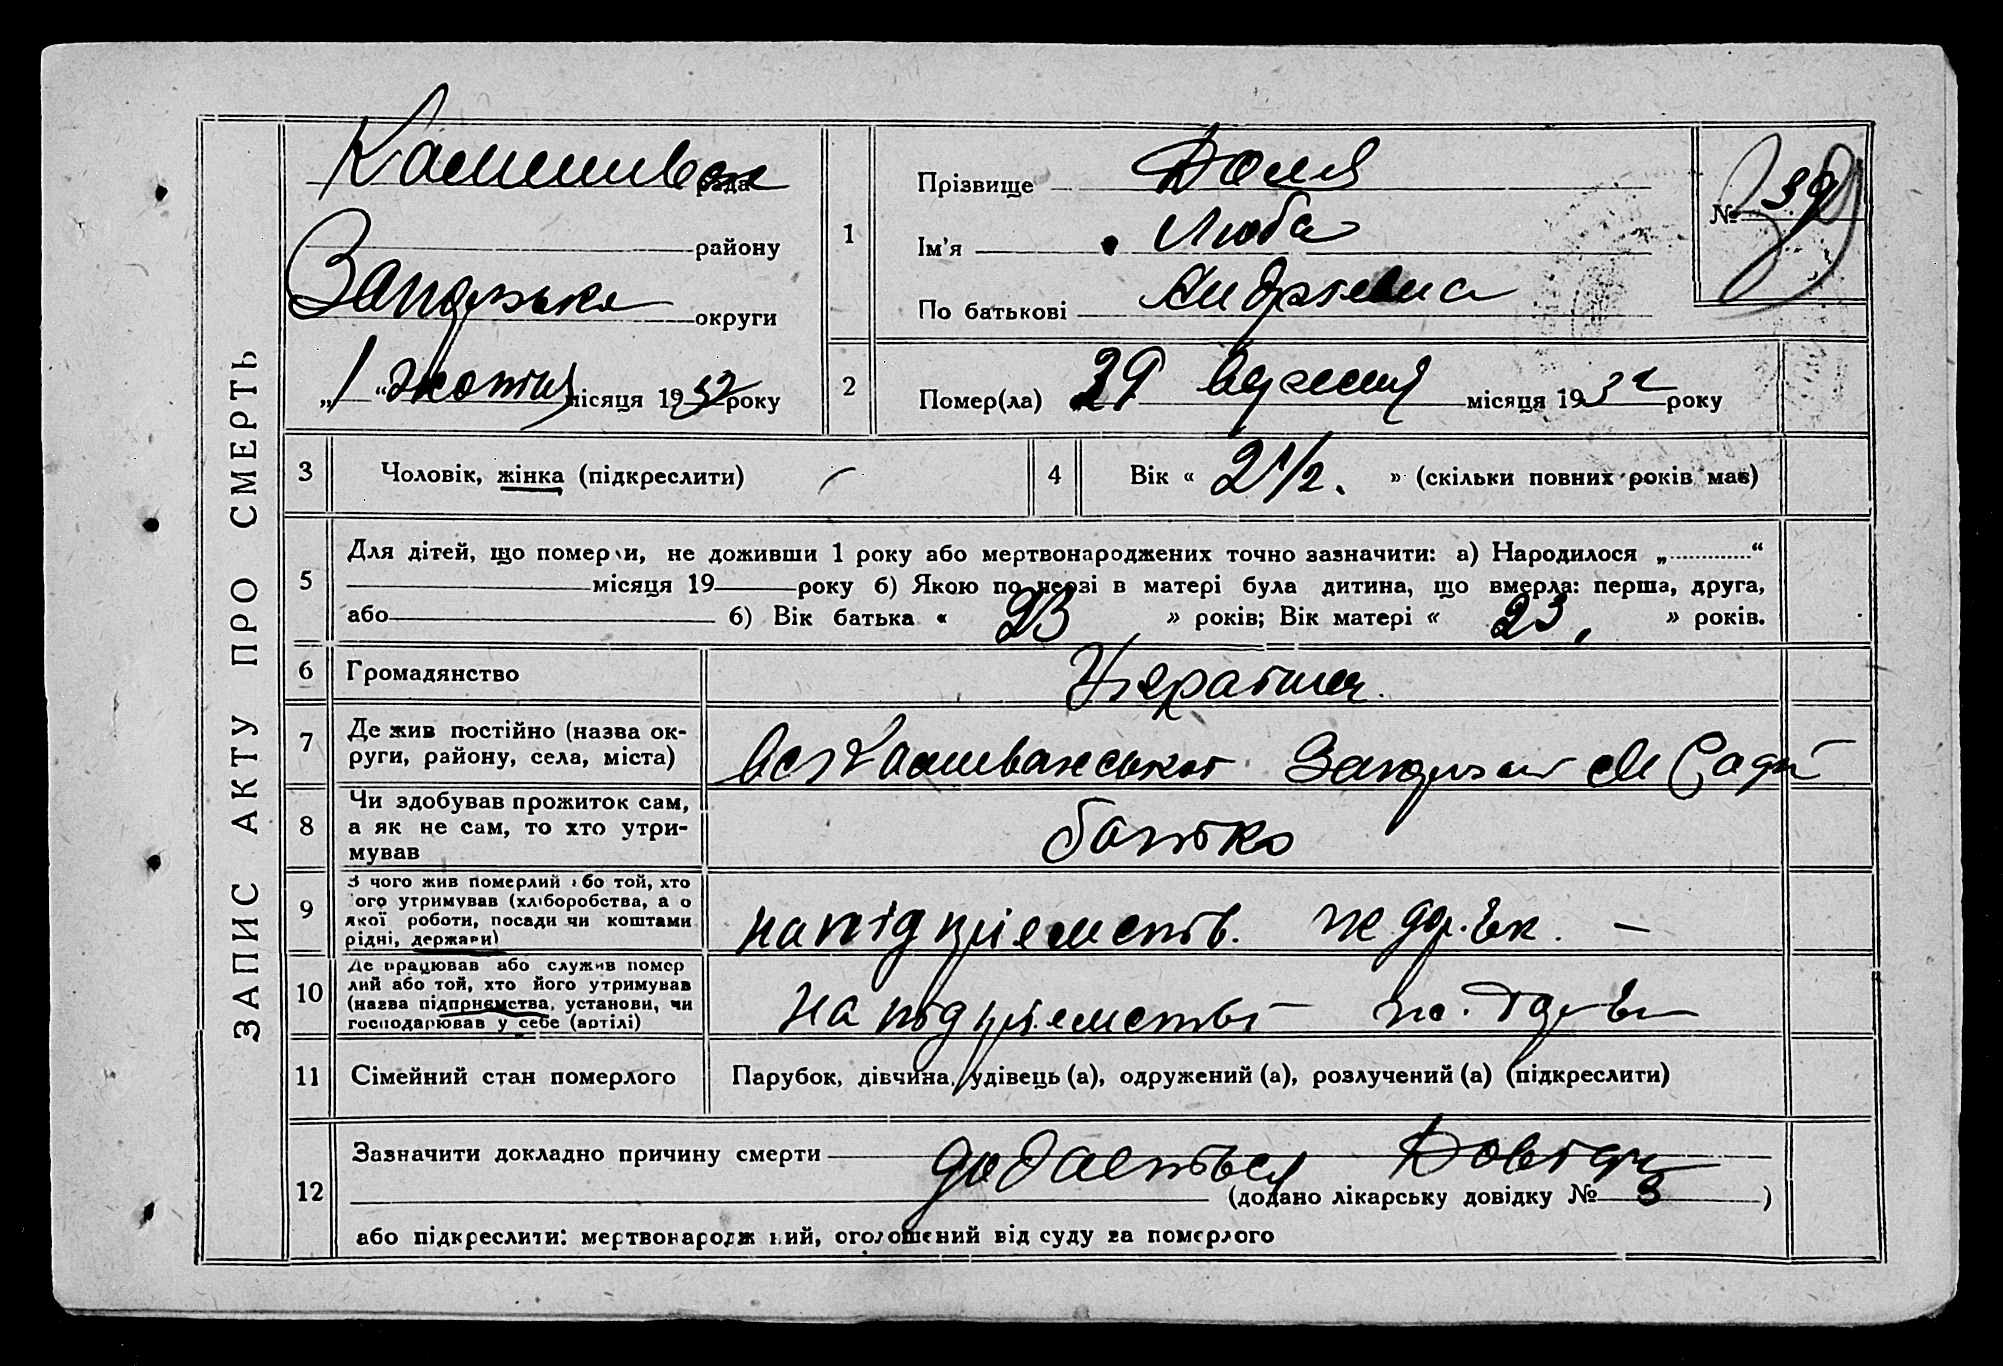 ЗАПИС АКТУ ПРО СМЕРТЬ
рада
району
округи
„1“ жовтня місяця 1932 року
1
Прізвище Доля
Ім'я Люба
По батькові Андріевна
№ 39
2
Помер(ла) 29 вересня місяця 1932 року
3
Чоловік, жінка (підкреслити)
4
Вік « 2 1/2. » (скільки повних років має)
5
Для дітей, що померли, не доживши 1 року або мертвонароджених точно зазначити: а) Народилося „ “
місяця 19 року б) Якою по черзі в матері була дитина, що вмерла: перша, друга,
або б) Вік батька « 23 » років; Вік матері « 23, » років.
6
Громадянство
7
Де жив постійно (назва ок-
руги, району, села, міста)
8
Чи здобував прожиток сам,
а як не сам, то хто утри-
мував
батько
9
З чого жив померлий або той, хто
його утримував (хліборобства, а о
якої роботи, посади чи коштами
рідні, держави)
на підприємств.
10
Де працював або служив помер
лий або той, хто його утримував
(назва підприємства, установи, чи
господарював у себе (артілі)
на підприємстві
11
Сімейний стан померлого
Парубок, дівчина, удівець (а), одружений (а), розлучений (а) (підкреслити)
12
Зазначити докладно причину смерти додаеться
(додано лікарську довідку № 3 )
або підкреслити: мертвонароджений, оголошений від суду за померлого